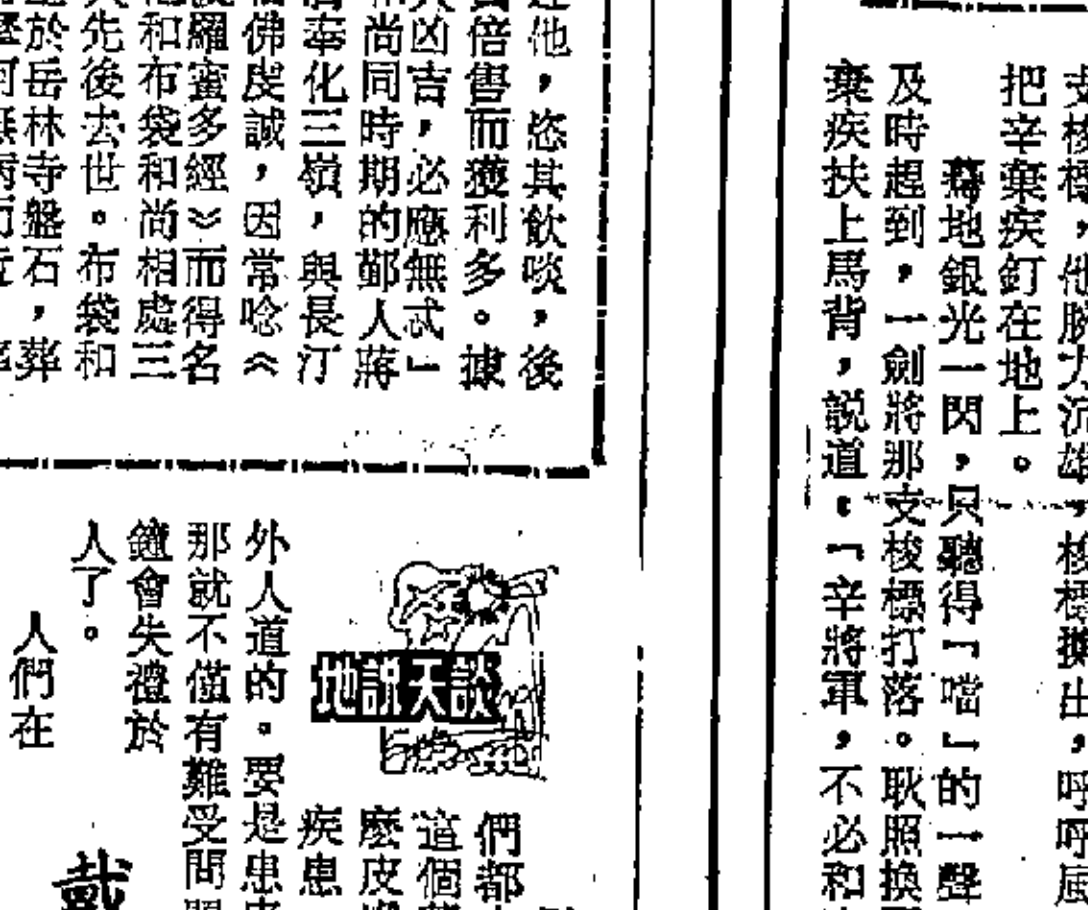 支梭標，他腕力沉雄，梭標擲出，呼呼風
把辛棄疾釘在地上。
驀地銀光一閃，只聽得「噹」的一聲
及時趕到，一劍將那支梭標打落。耿照換
棄疾扶上馬背，説道：「辛將軍，不必和
他，恣其飲啖，後
倍售而獲利多。據
凶吉，必應無忒」
尚同時期的鄞人蔣
奉化三嶺，與長汀
佛虔誠，因常唸《
羅蜜多經》而得名
和布袋和尚相處三
先後去世。布袋和
於岳林寺盤石，葬
談天説地
們都
這個
麼皮
疾患
外人道的。要是患
那就不僅有難受問
鐘會失禮於
人了。
人們在
戴